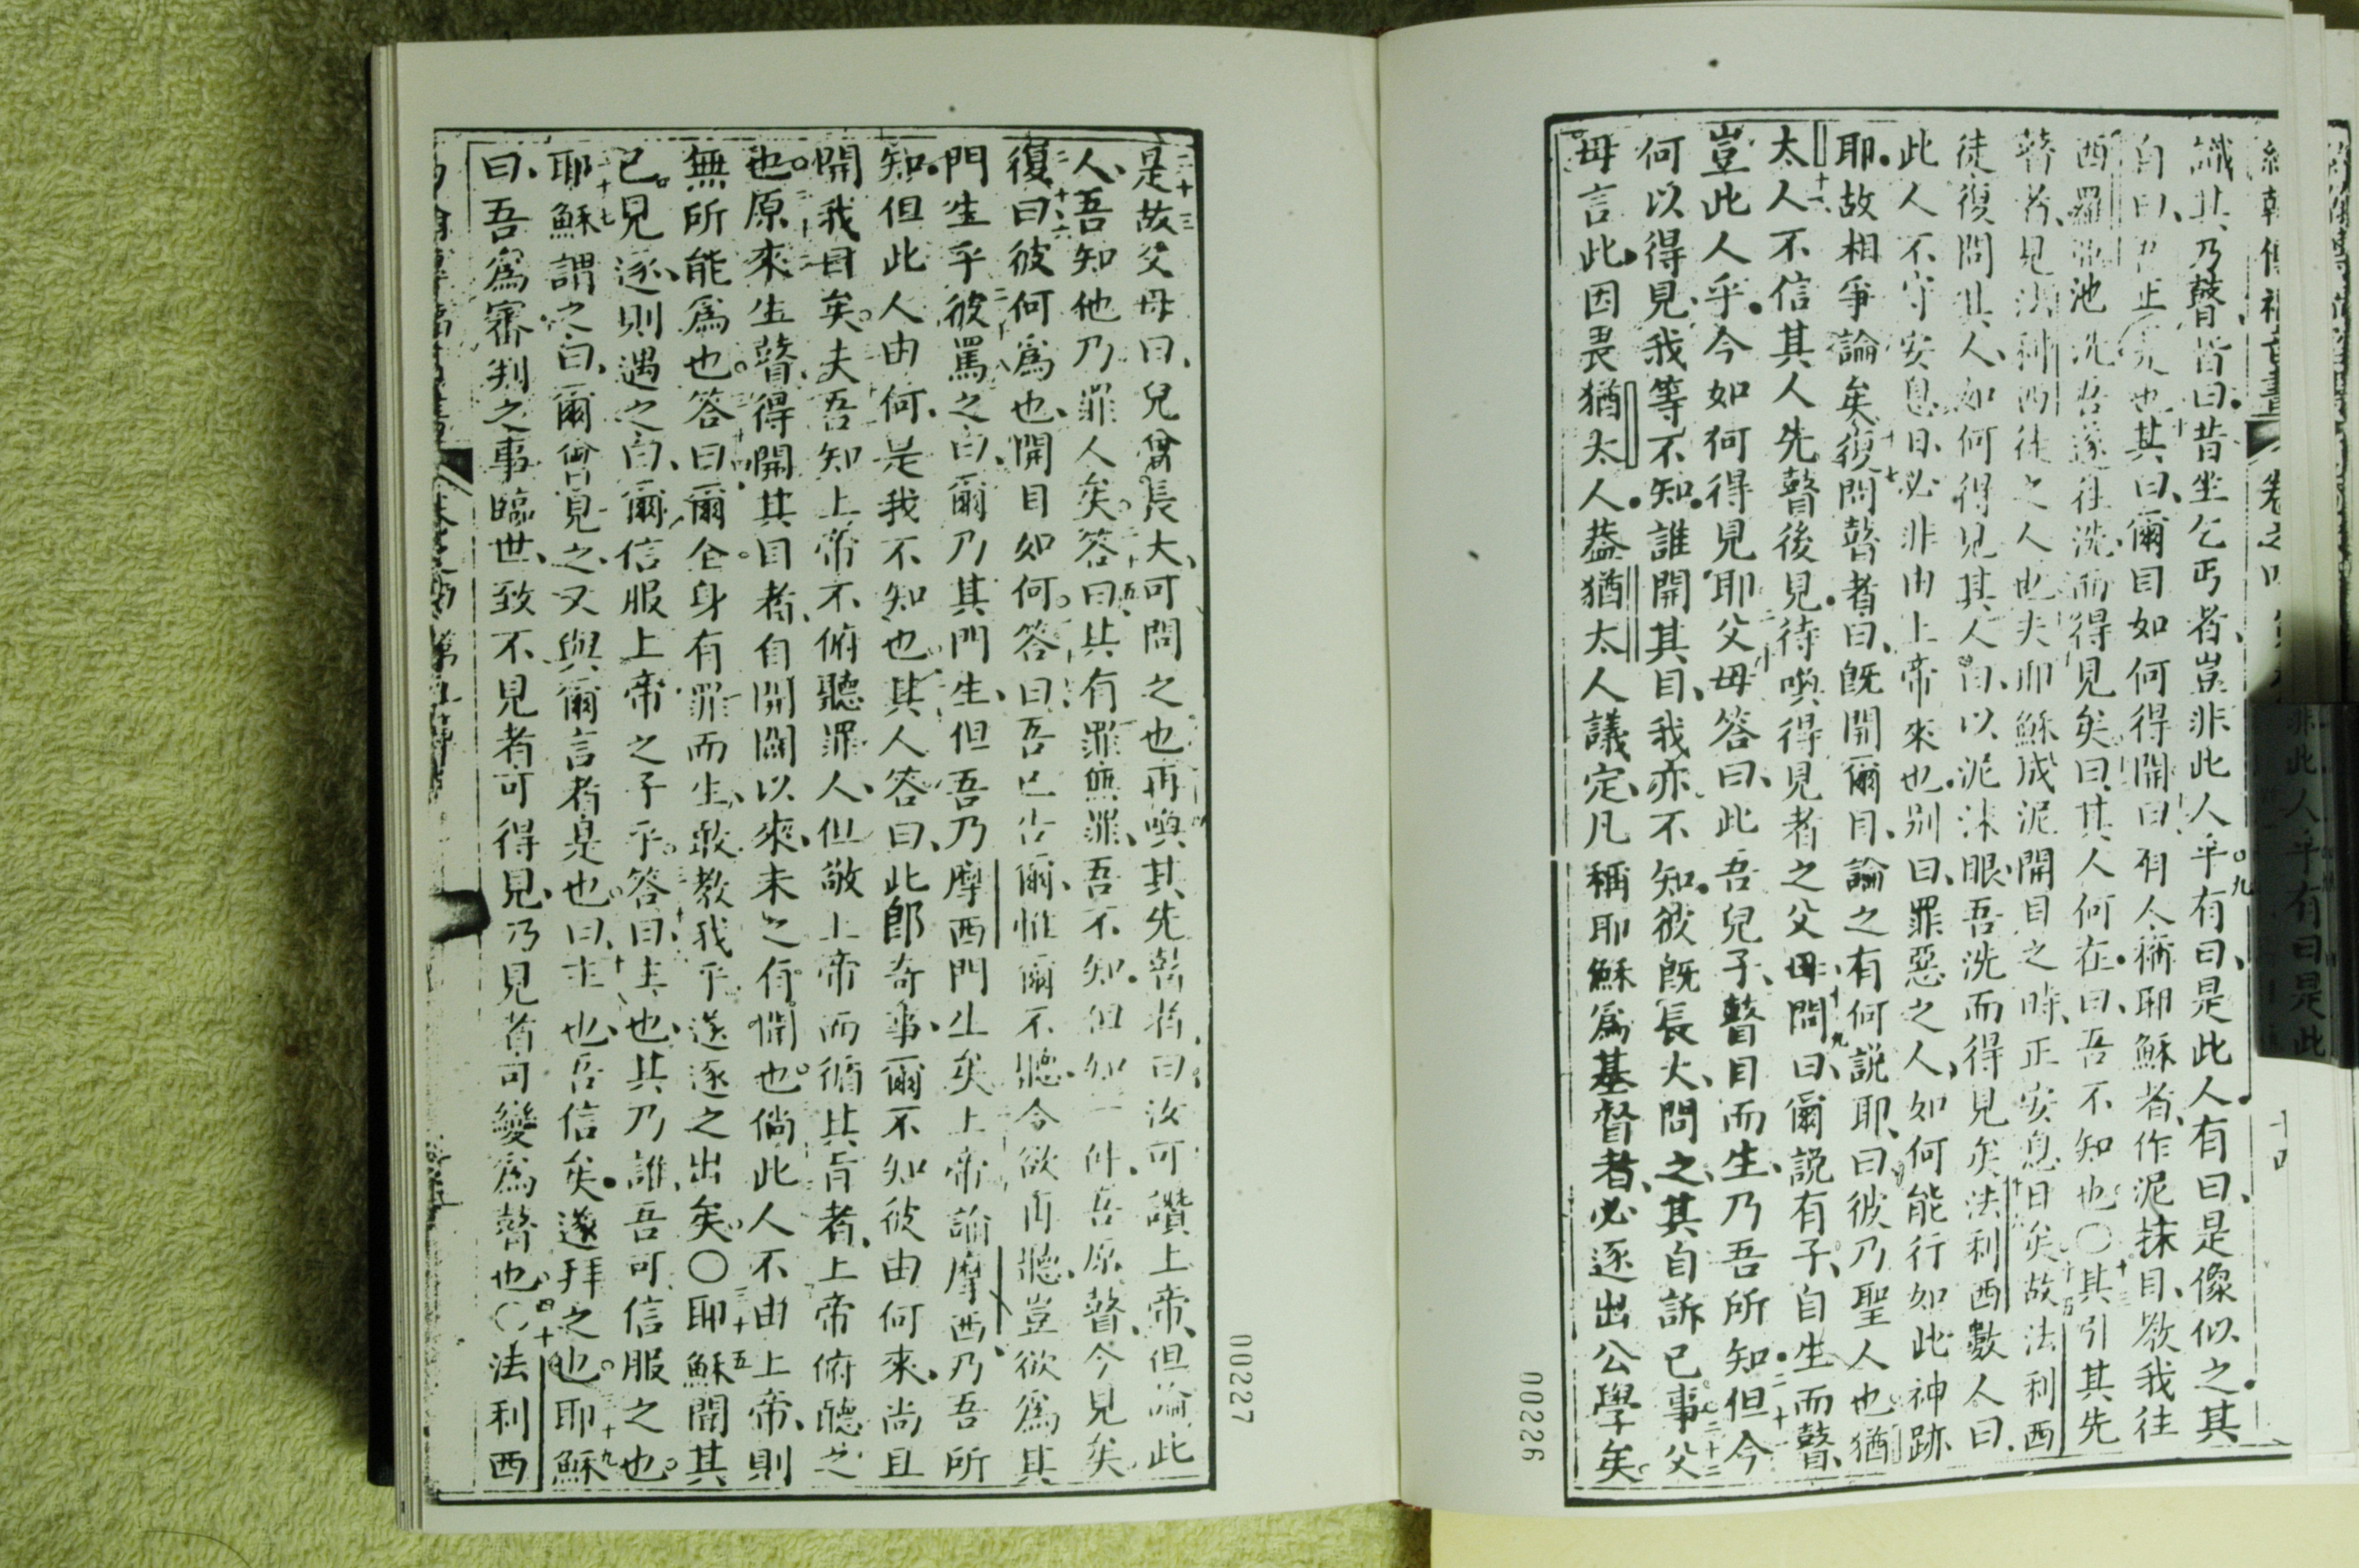 識其乃瞽、皆曰、昔坐乞丐者、豈非此人乎有曰、是此人、有曰、是像似之、其
自曰、正是也其曰、爾目如何得開曰有人稱耶穌者、作泥抹目、教我往
西羅亞池洗吾遂往洗而得見矣曰其人何在、曰、吾不知也〇其引其先
瞽者、見法利西徒之人也夫耶穌成泥開目之時、正安息日矣故法利西
徒復問其人、如何得見其人曰、以泥沫眼、吾洗而得見矣法利西數人曰
此人不守安息日必非由上帝來也、別曰、罪惡之人、如何能行如此神跡
耶、故相爭論矣復問瞽者曰、旣開爾目、論之有何說耶、曰彼乃聖人也猶
太人不信其人先瞽後見、待喚得見者之父母、問曰、爾說有子、自生而瞽、
豈此人乎、今如何得見耶父母答曰、此吾兒子、瞽目而生、乃吾所知、但今
何以得見、我等不知、誰開其目、我亦不知、彼旣長大、問之、其自訴已事父
母言此、因畏猶太人、葢猶太人議定、凡稱耶穌爲基督者、必逐出公學矣
00226
是故父母曰、兒曾長大、可問之也再喚其先瞽者、曰、汝可讚上帝、但論此
人、吾知他乃罪人矣答曰、其有罪無罪、吾不知、但知一件、吾原瞽、今見矣
復曰彼何爲也、開目如何答曰、吾已告爾、惟爾不聽、今欲再聽、豈欲爲其
門生乎彼罵之曰、爾乃其門生、但吾乃摩西門生矣上帝諭摩西、乃吾所
知、但此人由何、是我不知也其人答曰、此郎奇事、爾不知彼由何來、尚且
開我目矣夫吾知上帝不俯聽罪人、但敬上帝而循其旨者、上帝俯聽之
也原來生瞽、得開其目者、自開闢以來、未之有聞也倘此人不由上帝、則
無所能爲也答曰、爾仝身有罪而生、敢教我乎遂逐之出矣〇耶穌聞其
已見逐、則遇之曰、爾信服上帝之子乎答曰、主也、其乃誰、吾可信服之也
耶穌謂之曰、爾曾見之、又與爾言者是也曰、主也、吾信矣、遂拜之也耶穌
曰、吾爲審判之事臨世、致不見者可得見、乃見者可變爲瞽也〇法利西
00227